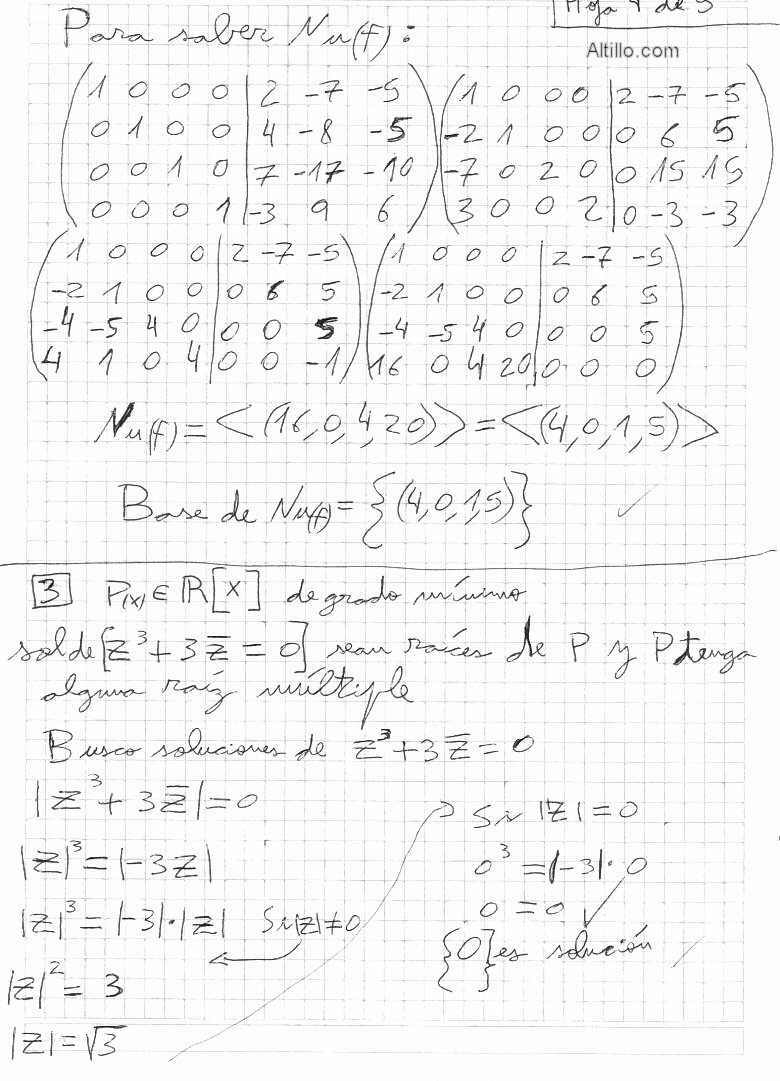 Hoja 4 de 5
Altillo.com
Para saber Nu(f):
( 1 0 0 0 | 2 -7 -5 ) ( 1 0 0 0 | 2 -7 -5 )
( 0 1 0 0 | 4 -8 -5 ) ( -2 1 0 0 | 0 6 5 )
( 0 0 1 0 | 7 -17 -10 ) ( -7 0 2 0 | 0 15 15 )
( 0 0 0 1 | -3 9 6 ) ( 3 0 0 2 | 0 -3 -3 )
( 1 0 0 0 | 2 -7 -5 ) ( 1 0 0 0 | 2 -7 -5 )
( -2 1 0 0 | 0 6 5 ) ( -2 1 0 0 | 0 6 5 )
( -4 -5 4 0 | 0 0 5 ) ( -4 -5 4 0 | 0 0 5 )
( 4 1 0 4 | 0 0 -1 ) ( 16 0 4 20 | 0 0 0 )
Nu(f) = <(16,0,4,20)> = <(4,0,1,5)>
Base de Nu(f) = {(4,0,1,5)} ✓
3 P(x) ∈ R[x] de grado mínimo
sol de [z³ + 3z̅ = 0] sean raíces de P y P tenga
alguna raíz múltiple
Busco soluciones de z³ + 3z̅ = 0
|z³ + 3z̅| = 0
|z|³ = |-3z|
|z|³ = |-3|·|z| Si |z| ≠ 0
|z|² = 3
|z| = √3
Si |z| = 0
0³ = |-3|·0
0 = 0 ✓
{0} es solución